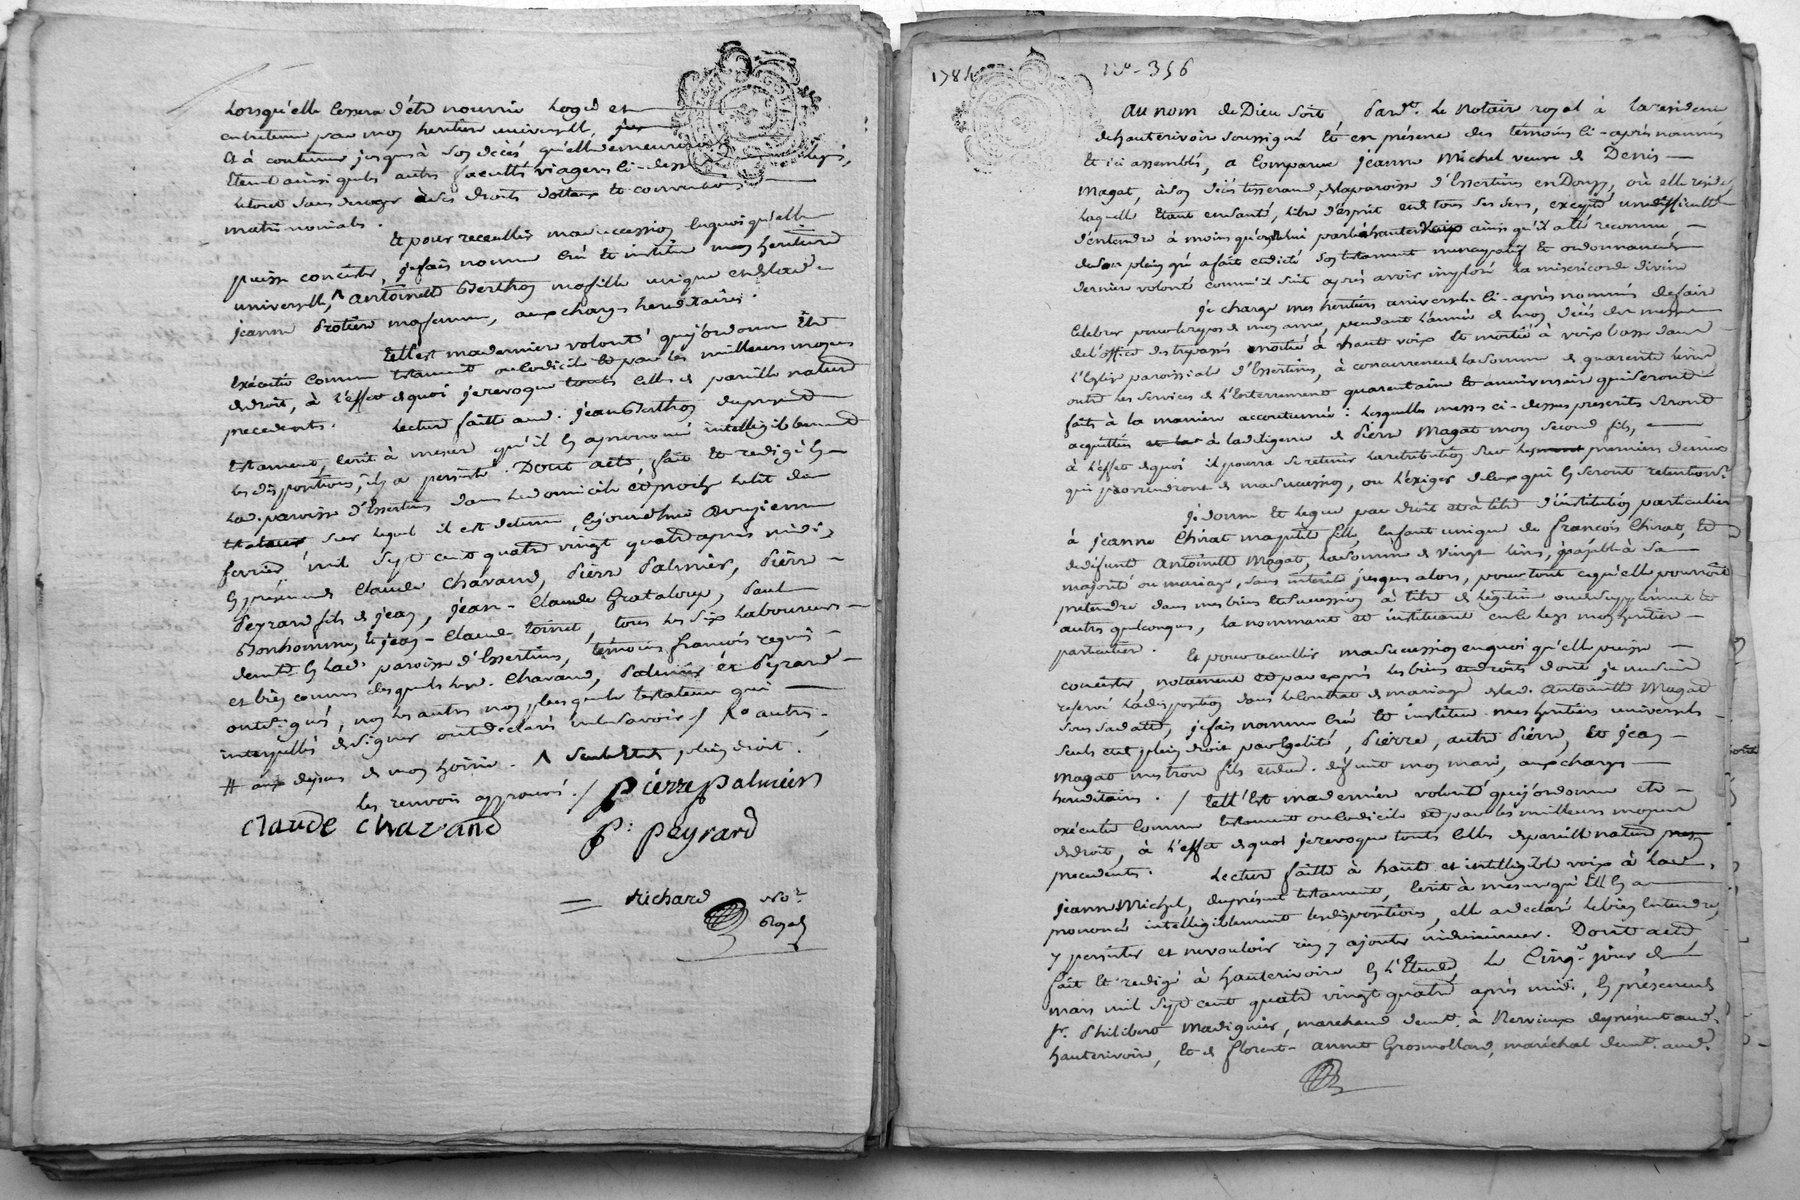 Lorsqu'elle cessera d'être nourrie logée et
entretenue par mon héritier universelle,
et à continuer jusques à son décès qu'elle demeurera
éteint ainsi que les autres facultés viageres ci-dess legs,
le tout sans deroger à ses droits dotaux et conventions
matrimoniales.
Et pour recueillir ma succession en quoi qu'elle
puisse concister, je fais nomme créé et institue mon héritiere
universelle, ^ Antoinette Berthon ma fille unique et de lad.e
jeanne Protiere ma femme, aux charges hereditaires.
Telle est ma derniere volonté que j'ordonne être
exécutée comme testament ou codicile et par les meilleurs moyens
de droit, à l'effet de quoi je revoque toutes celles de pareille nature
precedentes. Lecture faitte aud. jean Berthon du present
testament, écrit à mesure qu'il en a prononcé intelligiblement
les dispositions, il y a persisté. Dont acte, fait et redigé en
lad. paroisse d'Essertines dans le domicile et proche le lit du
testateur sur lequel il est detenu, cejourd'hui onzieme
fevrier mil sept cent quatre vingt quatre après midi,
en présence de Claude Chavand, Pierre Palmier, Pierre
Peyrard fils de jean, jean-Claude Grataloup, Paul
Bonhomme, et jean-Claude Poirret, tous les six laboureurs
demt. en lad. paroisse d'Essertines, témoins françois requis
et bien connus desquels lesd. Chavand, Palmier et Peyrard
ont signé, non les autres non plus que le testateur qui
interpellés de signer ont declaré ne le savoir /
# aux depens de mon hoirie. ^ seule et de plein droit.
les renvois approuvés. / Pierre Palmier
Claude Chavand
P: Peyrard
Richard No.re
Royal
1784 N.o 356
Au nom de Dieu soit Pard.t le Notaire royal à la residence
de hauterivoire soussigné et en présence des témoins ci-après nommés
et ici assemblés, a comparue jeanne Michel veuve de Denis
Magat, à son décès tisserand, de la paroisse d'Essertines en Donzy, où elle reside,
laquelle étant en santé, libre d'esprit et de tous ses sens, excepté une difficulté
d'entendre à moins qu'on ne lui parle à haute voix ainsi qu'il a été reconnu,
de son plein gré a fait et dicté son testament nuncupatif et ordonnance de
derniere volonté comme il suit après avoir imploré la misericorde divine
Je charge mes héritiers universels ci-après nommés de faire
celebrer pour le repos de mon ame, pendant l'année de mon décès des messes
de l'office des trépassés moitié à haute voix et moitié à voix basse dans
l'Eglise paroissiale d'Essertines, à concurrence de la somme de quarante livres
outre les services de l'enterrement quarantaine et anniversaire qui seront
faits à la maniere accoutumée: lesquelles messes ci-dessus prescrites seront
acquittées et les à la diligence de Pierre Magat mon second fils,
à l'effet de quoi il pourra se retenir la retribution sur les premiers deniers
qui proviendront de ma succession, ou l'exiger de ceux qui en seront retenteurs.
Je donne et legue par droit et à titre d'institution particuliere
à jeanne Chirat ma petite fille, enfant unique de françois Chirat, et
de défunte Antoinette Magat, la somme de vingt livres, payable à sa
majorité ou mariage, sans interêts jusques alors, pour tout ce qu'elle pourroit
pretendre dans mes biens et succession à titre de légitime ou de supplément et
autres quelconques, la nommant et instituant en ce legs mon héritiere
particuliere. Et pour recueillir ma succession en quoi qu'elle puisse
concister notament et par exprès les biens et droits dont je me suis
reservé la disposition dans le contrat de mariage de lad. Antoinette Magat
sous sa datte, je fais nomme créé et institue mes héritiers universels
seuls et de plein droit par égalité, Pierre, autre Pierre, et jean
Magat mes trois fils et dud. défunt mon mari, aux charges
hereditaires. / Telle est ma derniere volonté que j'ordonne être
exécutée comme testament ou codicile et par les meilleurs moyens
de droit, à l'effet de quoi je revoque toutes celles de pareille nature
precedentes. Lecture faitte à haute et intelligible voix à lad.
jeanne Michel, du présent testament, écrit à mesure qu'elle en a
prononcé intelligiblement les dispositions, elle a declaré le bien entendre,
y persister et ne vouloir rien y ajouter ni diminuer. Dont acte,
fait et redigé à hauterivoire en l'Etude, le cinq.e jour de
mars mil sept cent quatre vingt quatre après midi, en présence de
s.r Philibert Madignier, marchand demt. à Nervieux de présent aud.
hauterivoire, et de florent-annet Grosmollard, maréchal demt. aud.